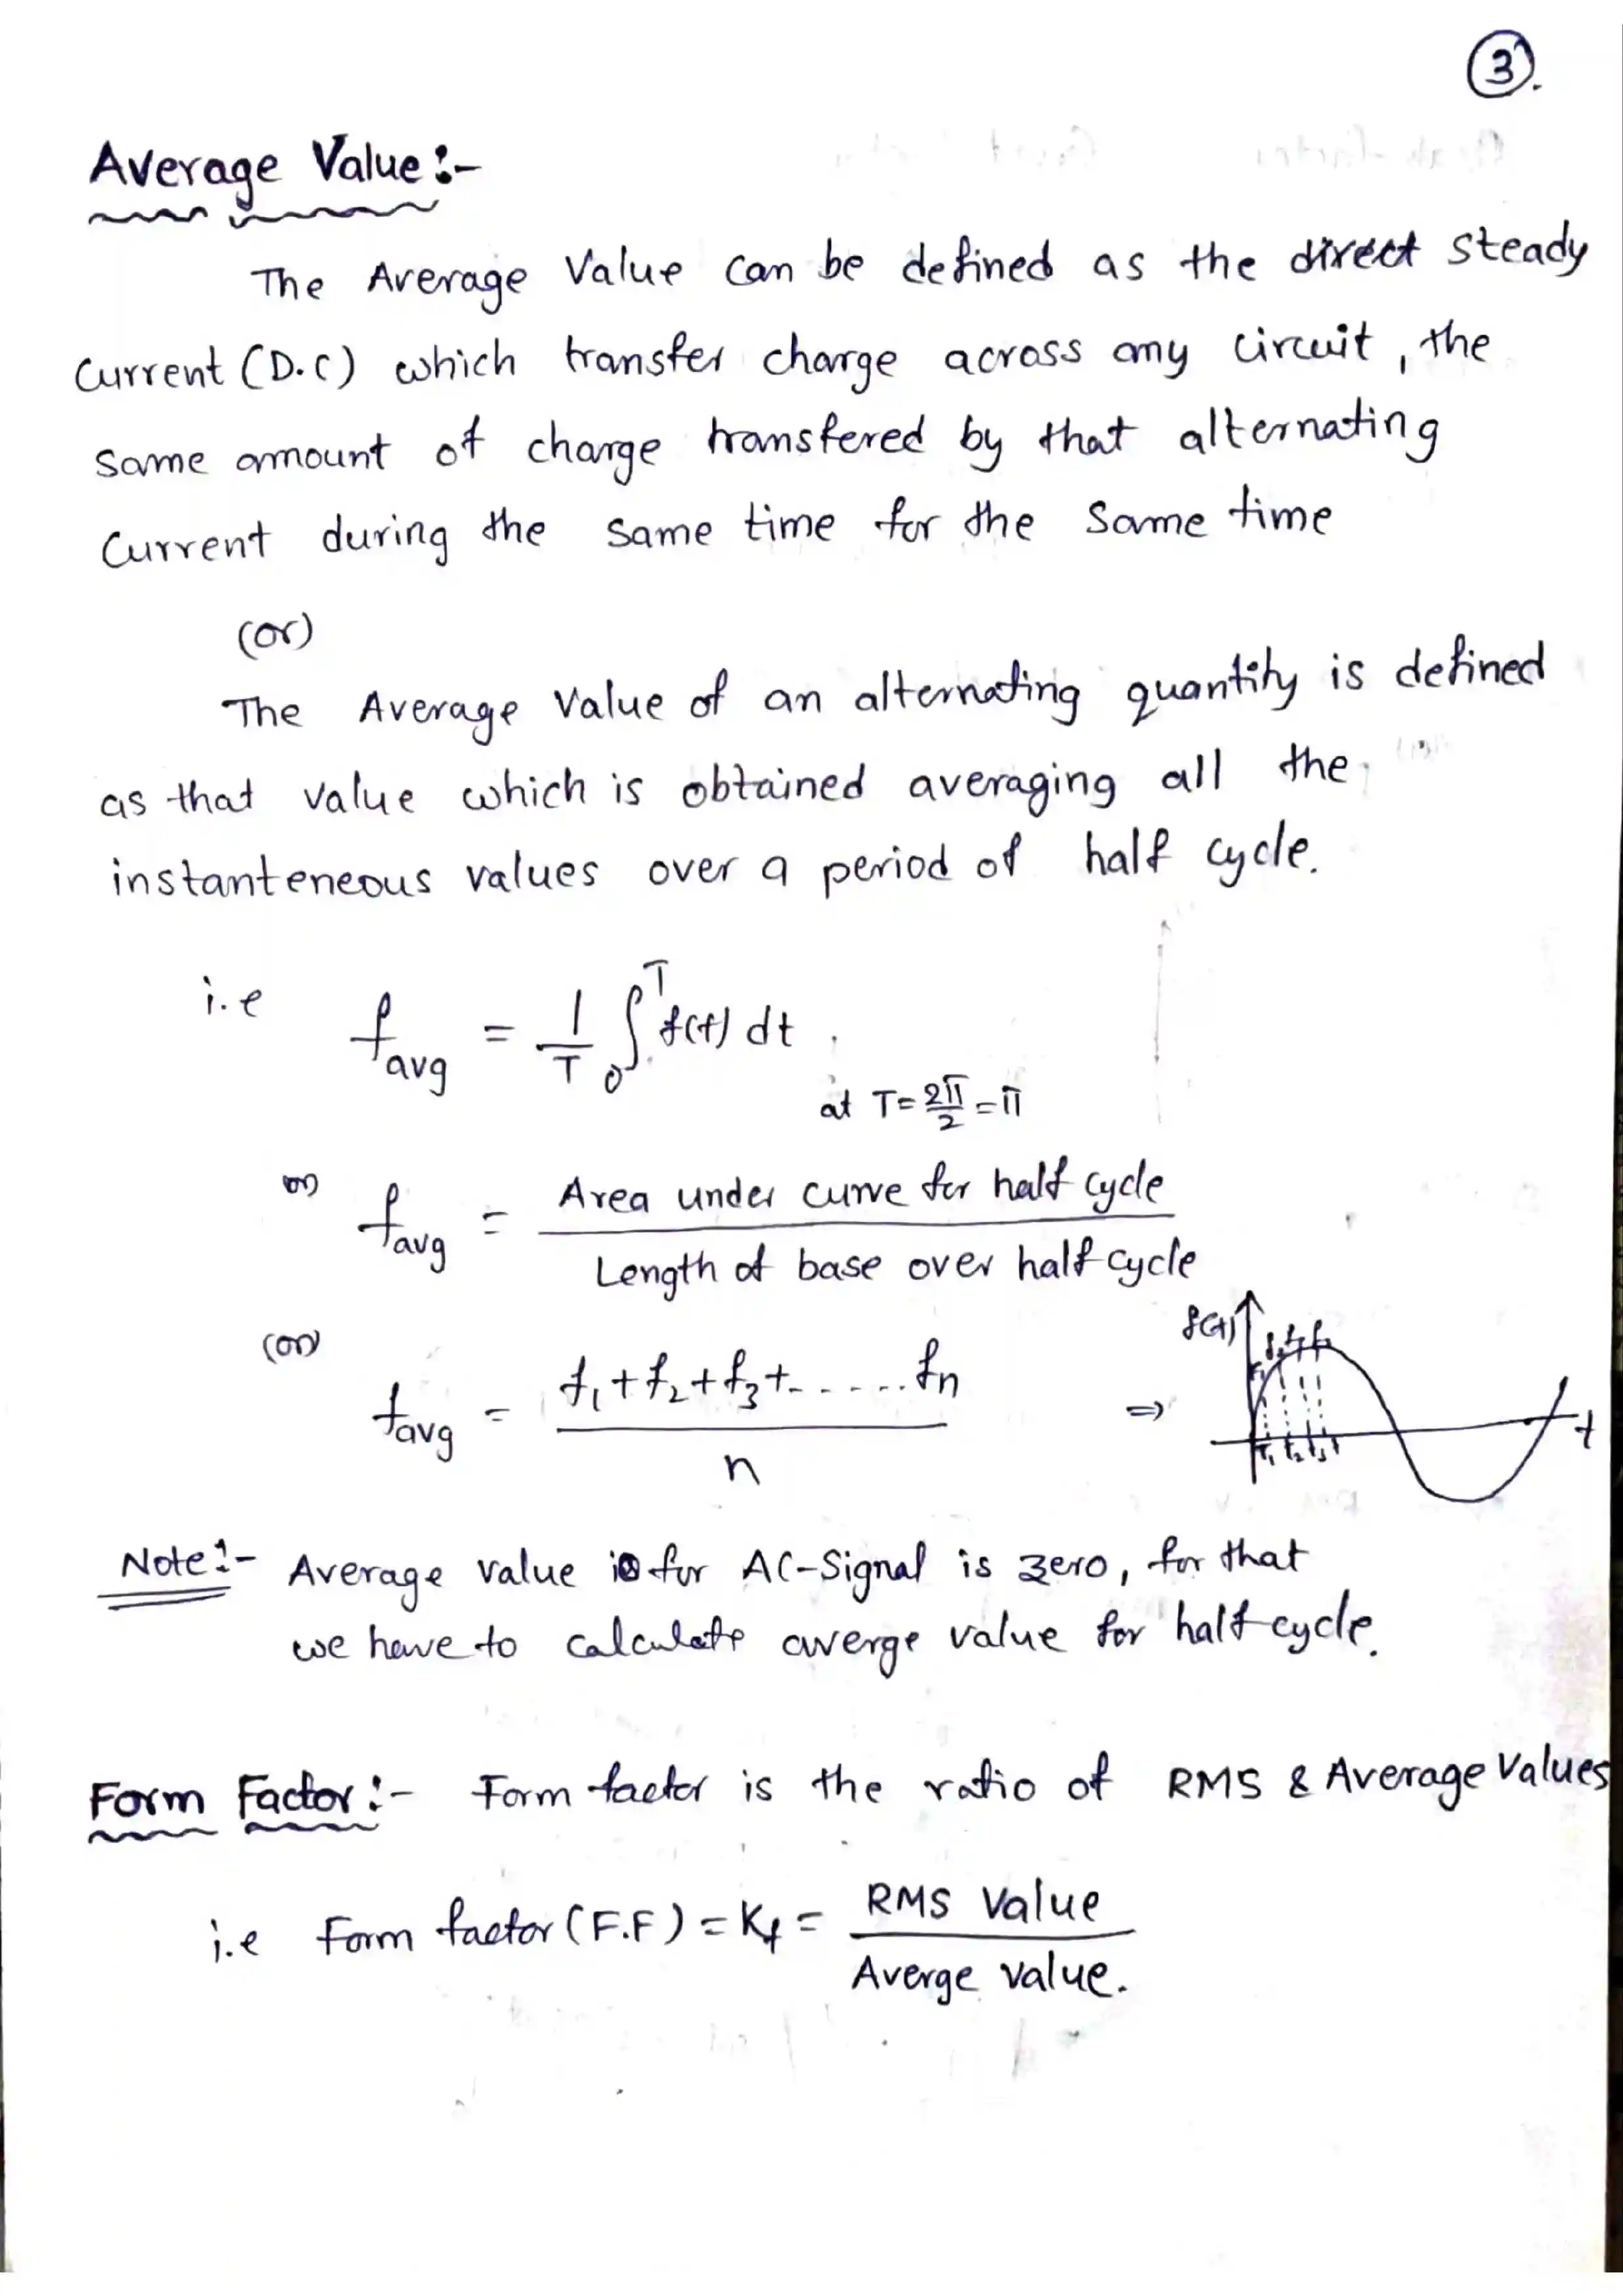 3.
Average Value:-
The Average Value can be defined as the direct steady
Current (D.C) which transfer charge across any circuit, the
same amount of charge transfered by that alternating
Current during the same time for the same time
(or)
The Average Value of an alternating quantity is defined
as that value which is obtained averaging all the
instanteneous values over a period of half cycle.
i.e f_avg = 1/T ∫_0^T f(t) dt
at T = 2π/2 = π
or) f_avg = Area under curve for half cycle / Length of base over half cycle
(or) f_avg = f₁+f₂+f₃+------fn / n ⇒
f(t) t
Note:- Average value for AC-Signal is zero, for that
we have to calculate averge value for half cycle.
Form Factor:- Form factor is the ratio of RMS & Average Values
i.e Form factor (F.F) = Kf = RMS Value / Averge value.